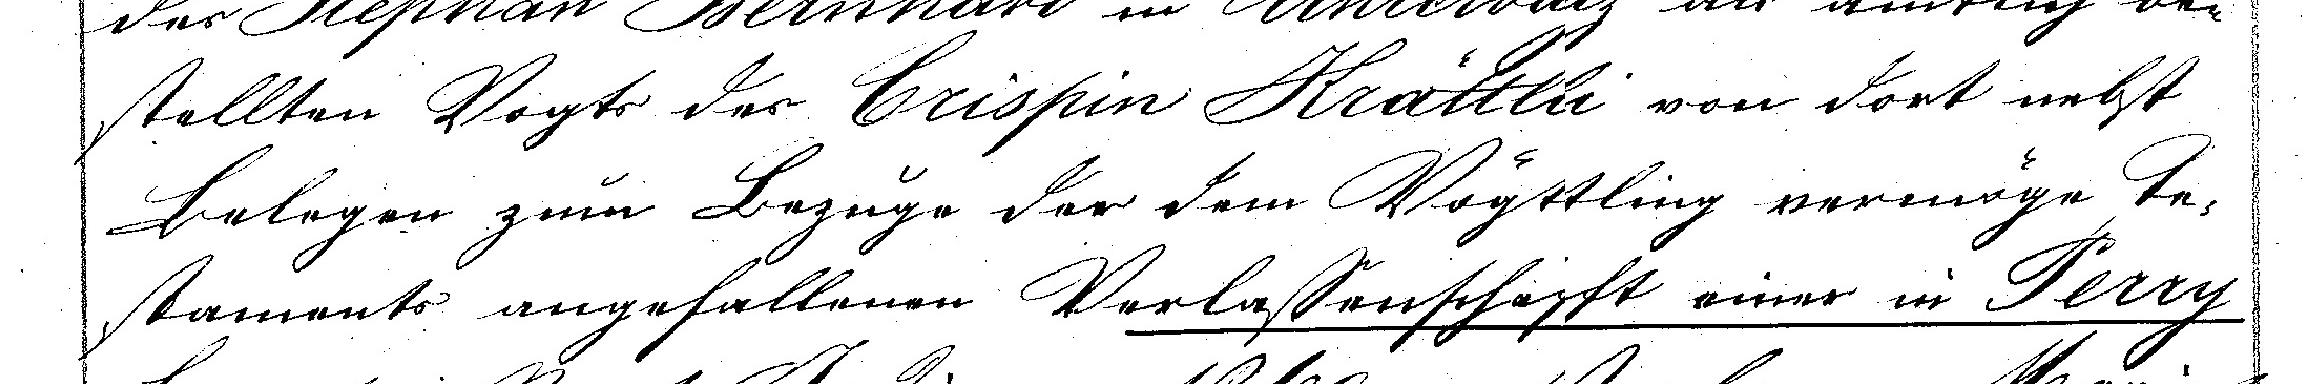 des Stephan Bernhard in Untervaz als amtlich be-
stellten Vogts des Crispin Krättli von dort nebst
Belegen zum Bezuge der dem Vögttling vermöge Te-
staments angefallenen Verlassenschafft einer in Perry